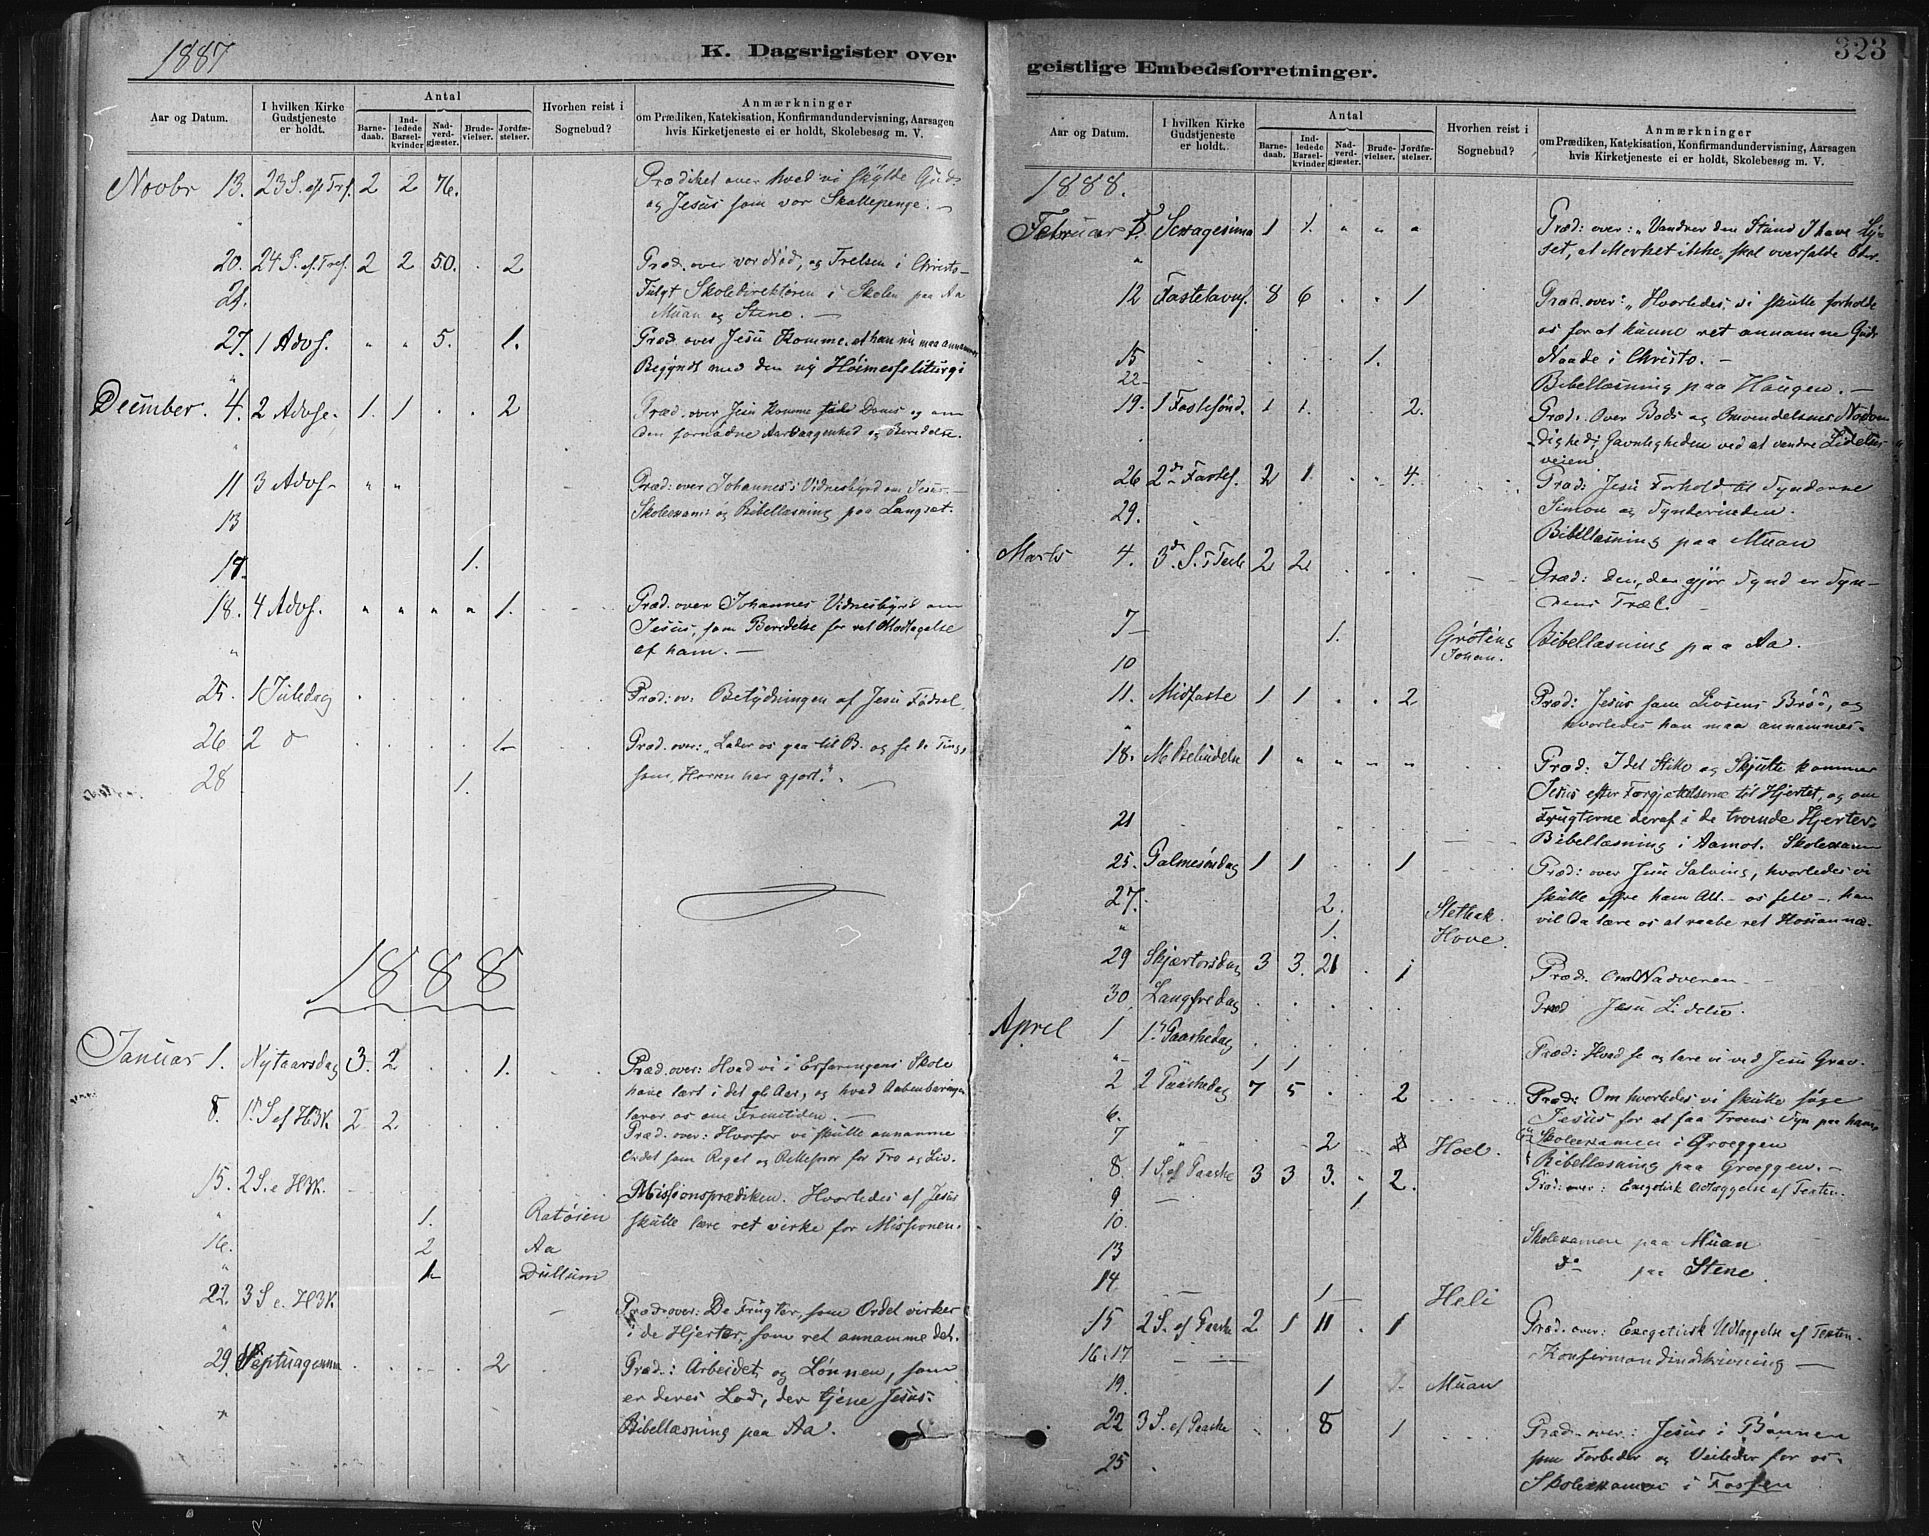 1887
K. Dagsrigister over
Aar og Datum.
I hvilken Kirke Gudstjeneste er holdt.
Antal
Barnedaab.
Indledede Barselkvinder
Nadverdgjæster.
Brudevielser.
Jordfæstelser.
Hvorhen reist i Sognebud?
Anmærkninger
om Prædiken, Katekisation, Konfirmandundervisning, Aarsagen
hvis Kirketjeneste ei er holdt, Skolebesøg m. V.
Novbr 13. 23 S. eft Tref. 2 2 76. Prædiket over hvad vi skylde Gud
og Jesus som vor Skattepenge. —
20. 24 S. ef. Tref. 2 2 50. . 2 Præd. over vor Nød, og Frelsen i Christo —
Fulgt Skoledirektøren i Skolen paa Aa
Muan og Stene. —
27. 1 Advf. " " 5. 1. Præd. over Jesu Komme, at han nu maa annammes
Begyndt med den ny Høimesseliturgi
December. 4. 2 Advse. 1. 1 . . 2 Præd. over Jesu Komme Doms og om
den fornødne Aarvaagenhed og Beredelse.
11 3 Advf. " " Præd: over Johannes's Vidnesbyrd om Jesus. —
13 Skoleexam: og Bibellæsning paa Langset.
1.
18. 4 Advf. " " " " 1. Præd. over Johannes Vidnesbyrd om
Jesus, som Beredelse for ret Modtagelse
af ham. —
25. 1 Juledag Præd: ov. Betydningen af Jesu Fødsel.
26 2 d 1 Præd. over: "Lader os gaa til B. og se de Ting,
som Herren har gjort." .
28 1.
1888
Januar 1. Nytaarsdag 3. 2 . . 1. Præd. over: Hvad vi i Erfaringens Skole
have lært i det gl. Aar, og hvad Aabenbaringen
lærer os om Fremtiden. —
8. 1 S ef H3K 2 2 Præd. over: Hvorfor vi skulle annamme
Ordet som Regel og Rettesnor for Tro og Liv.
15. 2 S. e H3K. Missionsprædiken. Hvorledes af Jesus
" 1. Ratøien skulle lære ret virke for Missionen.
16. 2 Aa
" 1 Dullum
22. 3 S e. H3K. Præd. over: De Frugter, som Ordet virker
i de Hjerter, som ret annamme det.
29. Septuagesima 2 Præd.: Arbeidet og Lønnen, som
er deres Lod, der tjene Jesus.
" Bibellæsning paa Aa.
323
geistlige Embedsforretninger.
Aar og Datum.
I hvilken Kirke Gudstjeneste er holdt.
Antal
Barnedaab.
Indledede Barselkvinder
Nadverdgjæster.
Brudevielser.
Jordfæstelser.
Hvorhen reist i Sognebud?
Anmærkninger
om Prædiken, Katekisation, Konfirmandundervisning, Aarsagen
hvis Kirketjeneste ei er holdt, Skolebesøg m. V.
1888.
Februar 5. Sexagesima 1 1. " " " Præd: over: "Vandrer den Stund I have Lyset,
at Mørket ikke skal overfalde Eder.
12 Fastelavnf. 8 6 . . 1 Præd. over: "Hvorledes vi skulle forholde
os for at kunne ret annamme Guds
15 1. Naade i Christo. —
22 Bibellæsning paa Haugen. —
19. 1 Fastesønd. 1 1. . . 2. Præd. Over Bods og Omvendelsens Nødvendighed,
Gavnligheden ved at vandre Lidelsesveien
26 2d Fastef. 2 1. . . 4. Præd: Jesu Forhold til Synderne
Simon og Synderinden.
29. Bibellæsning paa Muan
Marts 4. 3d S. i Faste 2 2. Præd: Den, der gjør Synd er Syndens
Træl.
7 Bibellæsning paa Aa.
10 1. Grøting Johan.
11. Midfaste 1 1 . . 2 Præd: Jesus som Livsens Brød, og
hvorledes han maa annammes.
18. M. Bebudelse 1 " " " " Præd: I det Stille og Skjulte kommer
Jesus efter Forgjættelserne til Hjertet, og om
Frugterne deraf i de troende Hjerter.
21 Bibellæsning i Aamot. Skoleexam
25. Palmesøndag 1 1 . . 1 Præd: over Jesu Salving, hvorledes vi
skulle offre ham Alt — os selv —, han
vil da lære os at raabe ret Hosianna.
27. 2. Stethak.
" 1. Hove.
29 Skjærtorsdag 3 3. 21 . 1 Præd. Om Nadveren —
30. Langfredag Præd Jesu Lidelse.
Aprel 1 1. Paaskedag Præd: Hvad se og lære vi ved Jesu Grav.
" 1 1
2 2 Paaskedag 7 5 . . 2 Præd: Om hvorledes vi skulle søge
Jesus for at faa Troens Syn paa ham.
6. Skoleexamen i Groeggen
7 " 2 Hoel. Bibellæsning paa Groeggen. —
8. 1 S. ef Paaske 3 3 3. . 2. Præd: over: Exegetisk Udlæggelse af Texten.
9. 1
10.
13 Skoleexamen paa Muan
14 do paa Stene.
1 Heli
15 2 S. ef Paaske 2 1 11 . 1 Præd. over: Exegetisk Udlæggelse af Texten.
16. 17 Konfirmandindskrivning —
19. 1 Muan
22 3 S. ef Paaske . . 8 1 Præd. over: Jesus i Bønnen
som Forbeder og Veileder for os.
25 Skoleexamen i Fossen